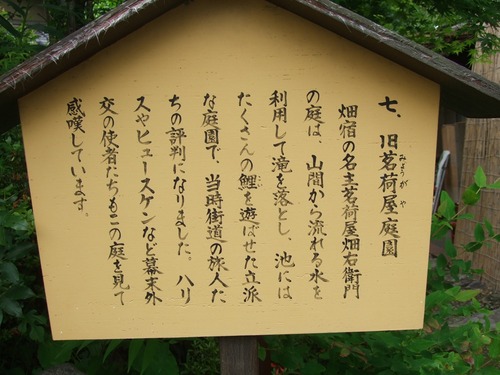 七、旧茗荷屋庭園
みょうがや
畑宿の名主茗荷屋畑右衛門
の庭は、山間から流れる水を
利用して滝を落とし、池には
たくさんの鯉を遊ばせた立派
こい
な庭園で、当時街道の旅人た
ちの評判になりました。ハリ
スやヒュースケンなど幕末外
交の使者たちもこの庭を見て
感嘆しています。